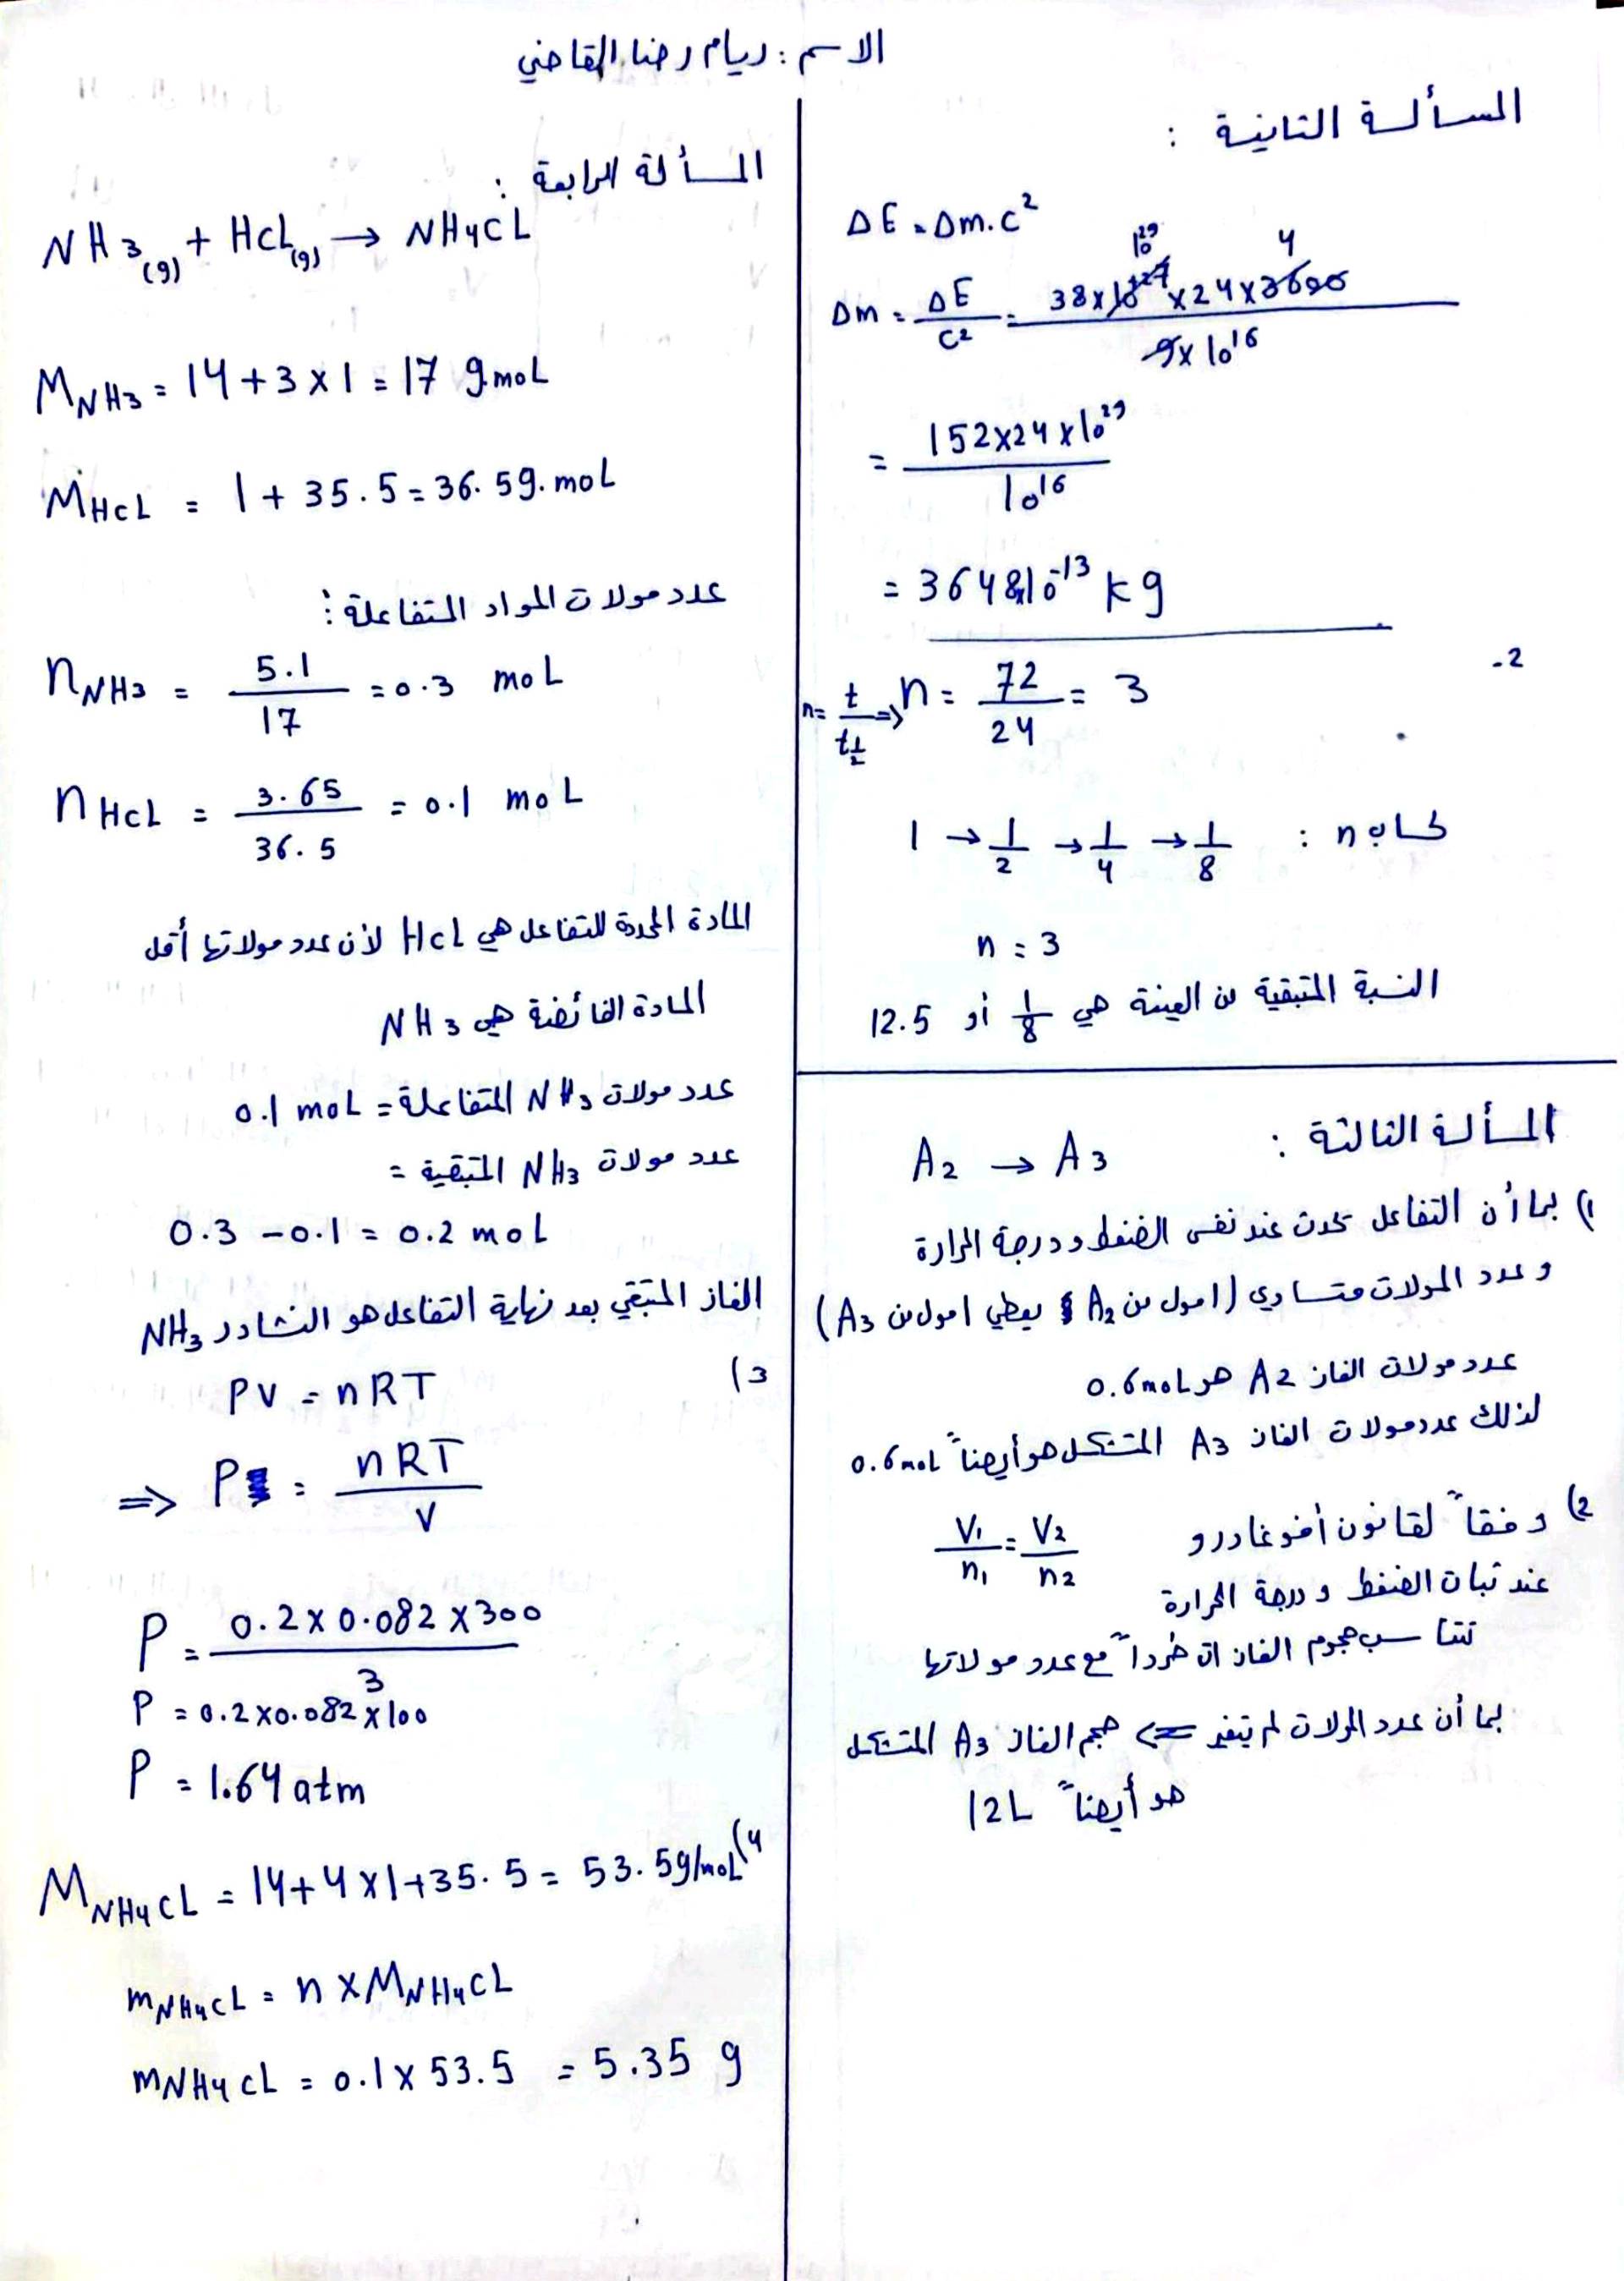 الاسم : ريام رضا القاضي
المسألة الثانية :
ΔE = Δm.c²
Δm = ΔE / c² = 38 × 10²⁷ × 24 × 3600 / 9 × 10¹⁶
10²⁹ 4
= 152×24×10²⁹ / 10¹⁶
= 3648×10⁻¹³ kg
2-
n = t / t½ ⇒ n = 72 / 24 = 3
لحساب n : 1 → 1/2 → 1/4 → 1/8
n = 3
النسبة المتبقية من العينة هي 1/8 أو 12.5
المسألة الثالثة :
A₂ → A₃
1) بما أن التفاعل يحدث عند نفس الضغط ودرجة الحرارة
وعدد المولات متساوي (1 مول من A₂ يعطي 1 مول من A₃)
عدد مولات الغاز A₂ هو 0.6 moL
لذلك عدد مولات الغاز A₃ المتشكل هو أيضاً 0.6 moL
2) وفقاً لقانون أفوغادرو V₁ / n₁ = V₂ / n₂
عند ثبات الضغط ودرجة الحرارة
تتناسب حجوم الغازات طرداً مع عدد مولاتها
بما أن عدد المولات لم يتغير <= حجم الغاز A₃ المتشكل
هو أيضاً 12L
المسألة الرابعة :
NH₃(g) + HcL(g) → NH₄CL
M NH₃ = 14 + 3 × 1 = 17 g.moL
M HcL = 1 + 35.5 = 36.5g.moL
عدد مولات المواد المتفاعلة :
n NH₃ = 5.1 / 17 = 0.3 moL
n HcL = 3.65 / 36.5 = 0.1 moL
المادة المحدة للتفاعل هي HcL لأن عدد مولاتها أقل
المادة الفائضة هي NH₃
عدد مولات NH₃ المتفاعلة = 0.1 moL
عدد مولات NH₃ المتبقية =
0.3 - 0.1 = 0.2 moL
الغاز المتبقي بعد نهاية التفاعل هو النشادر NH₃
3) PV = nRT
⇒ P = nRT / V
P = 0.2 × 0.082 × 300 / 3
P = 0.2 × 0.082 × 100
P = 1.64 atm
4) M NH₄CL = 14 + 4 × 1 + 35.5 = 53.5g/moL
m NH₄cL = n × M NH₄CL
m NH₄cL = 0.1 × 53.5 = 5.35 g